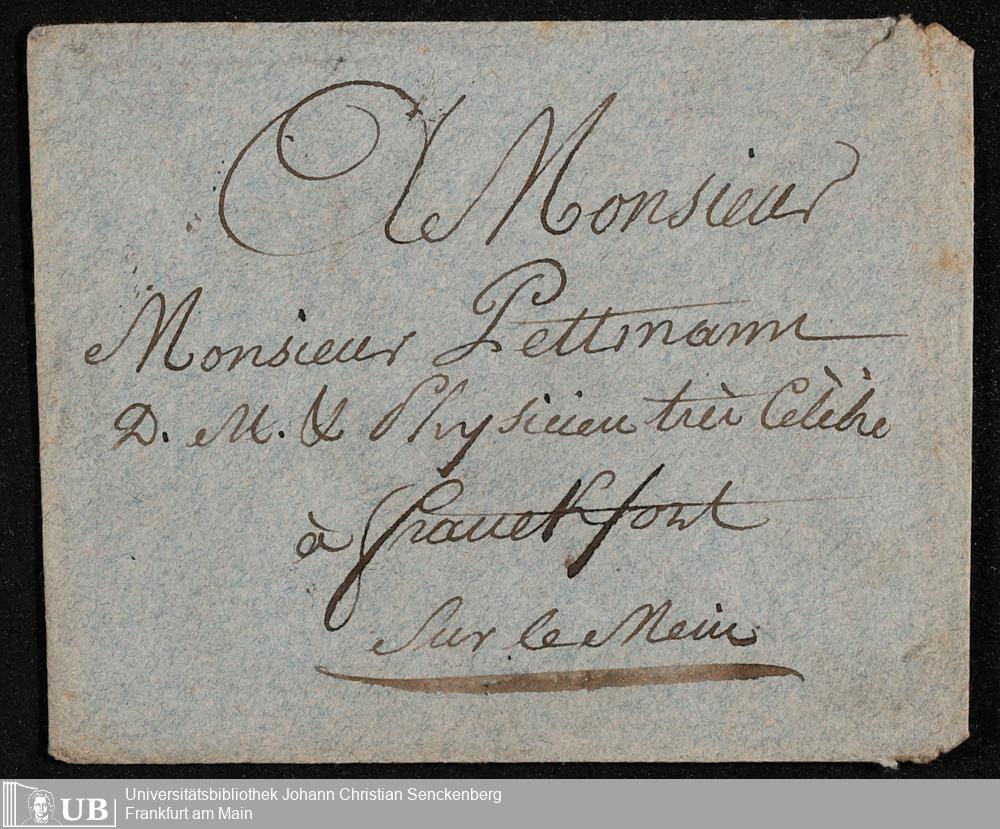 A Monsieur
Monsieur Pettmann
D. M. & Physicien très Celèbre
à Franckfort
Sur le Mein
UB
Universitätsbibliothek Johann Christian Senckenberg
Frankfurt am Main